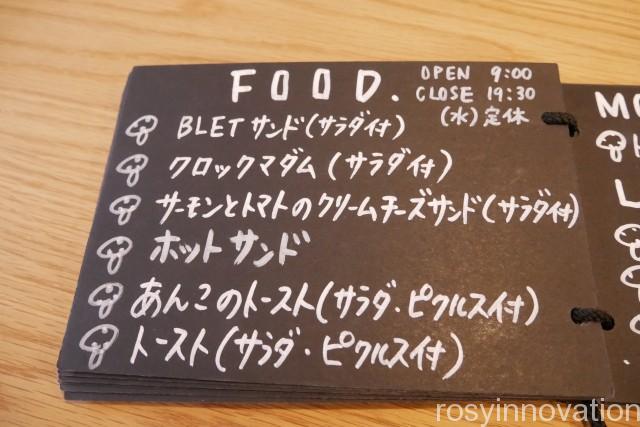 FOOD.
OPEN 9:00
CLOSE 19:30
(水)定休
BLETサンド(サラダ付)
クロックマダム(サラダ付)
サーモンとトマトのクリームチーズサンド(サラダ付)
ホットサンド
あんこのトースト(サラダ・ピクルス付)
トースト(サラダ・ピクルス付)
rosyinnovation